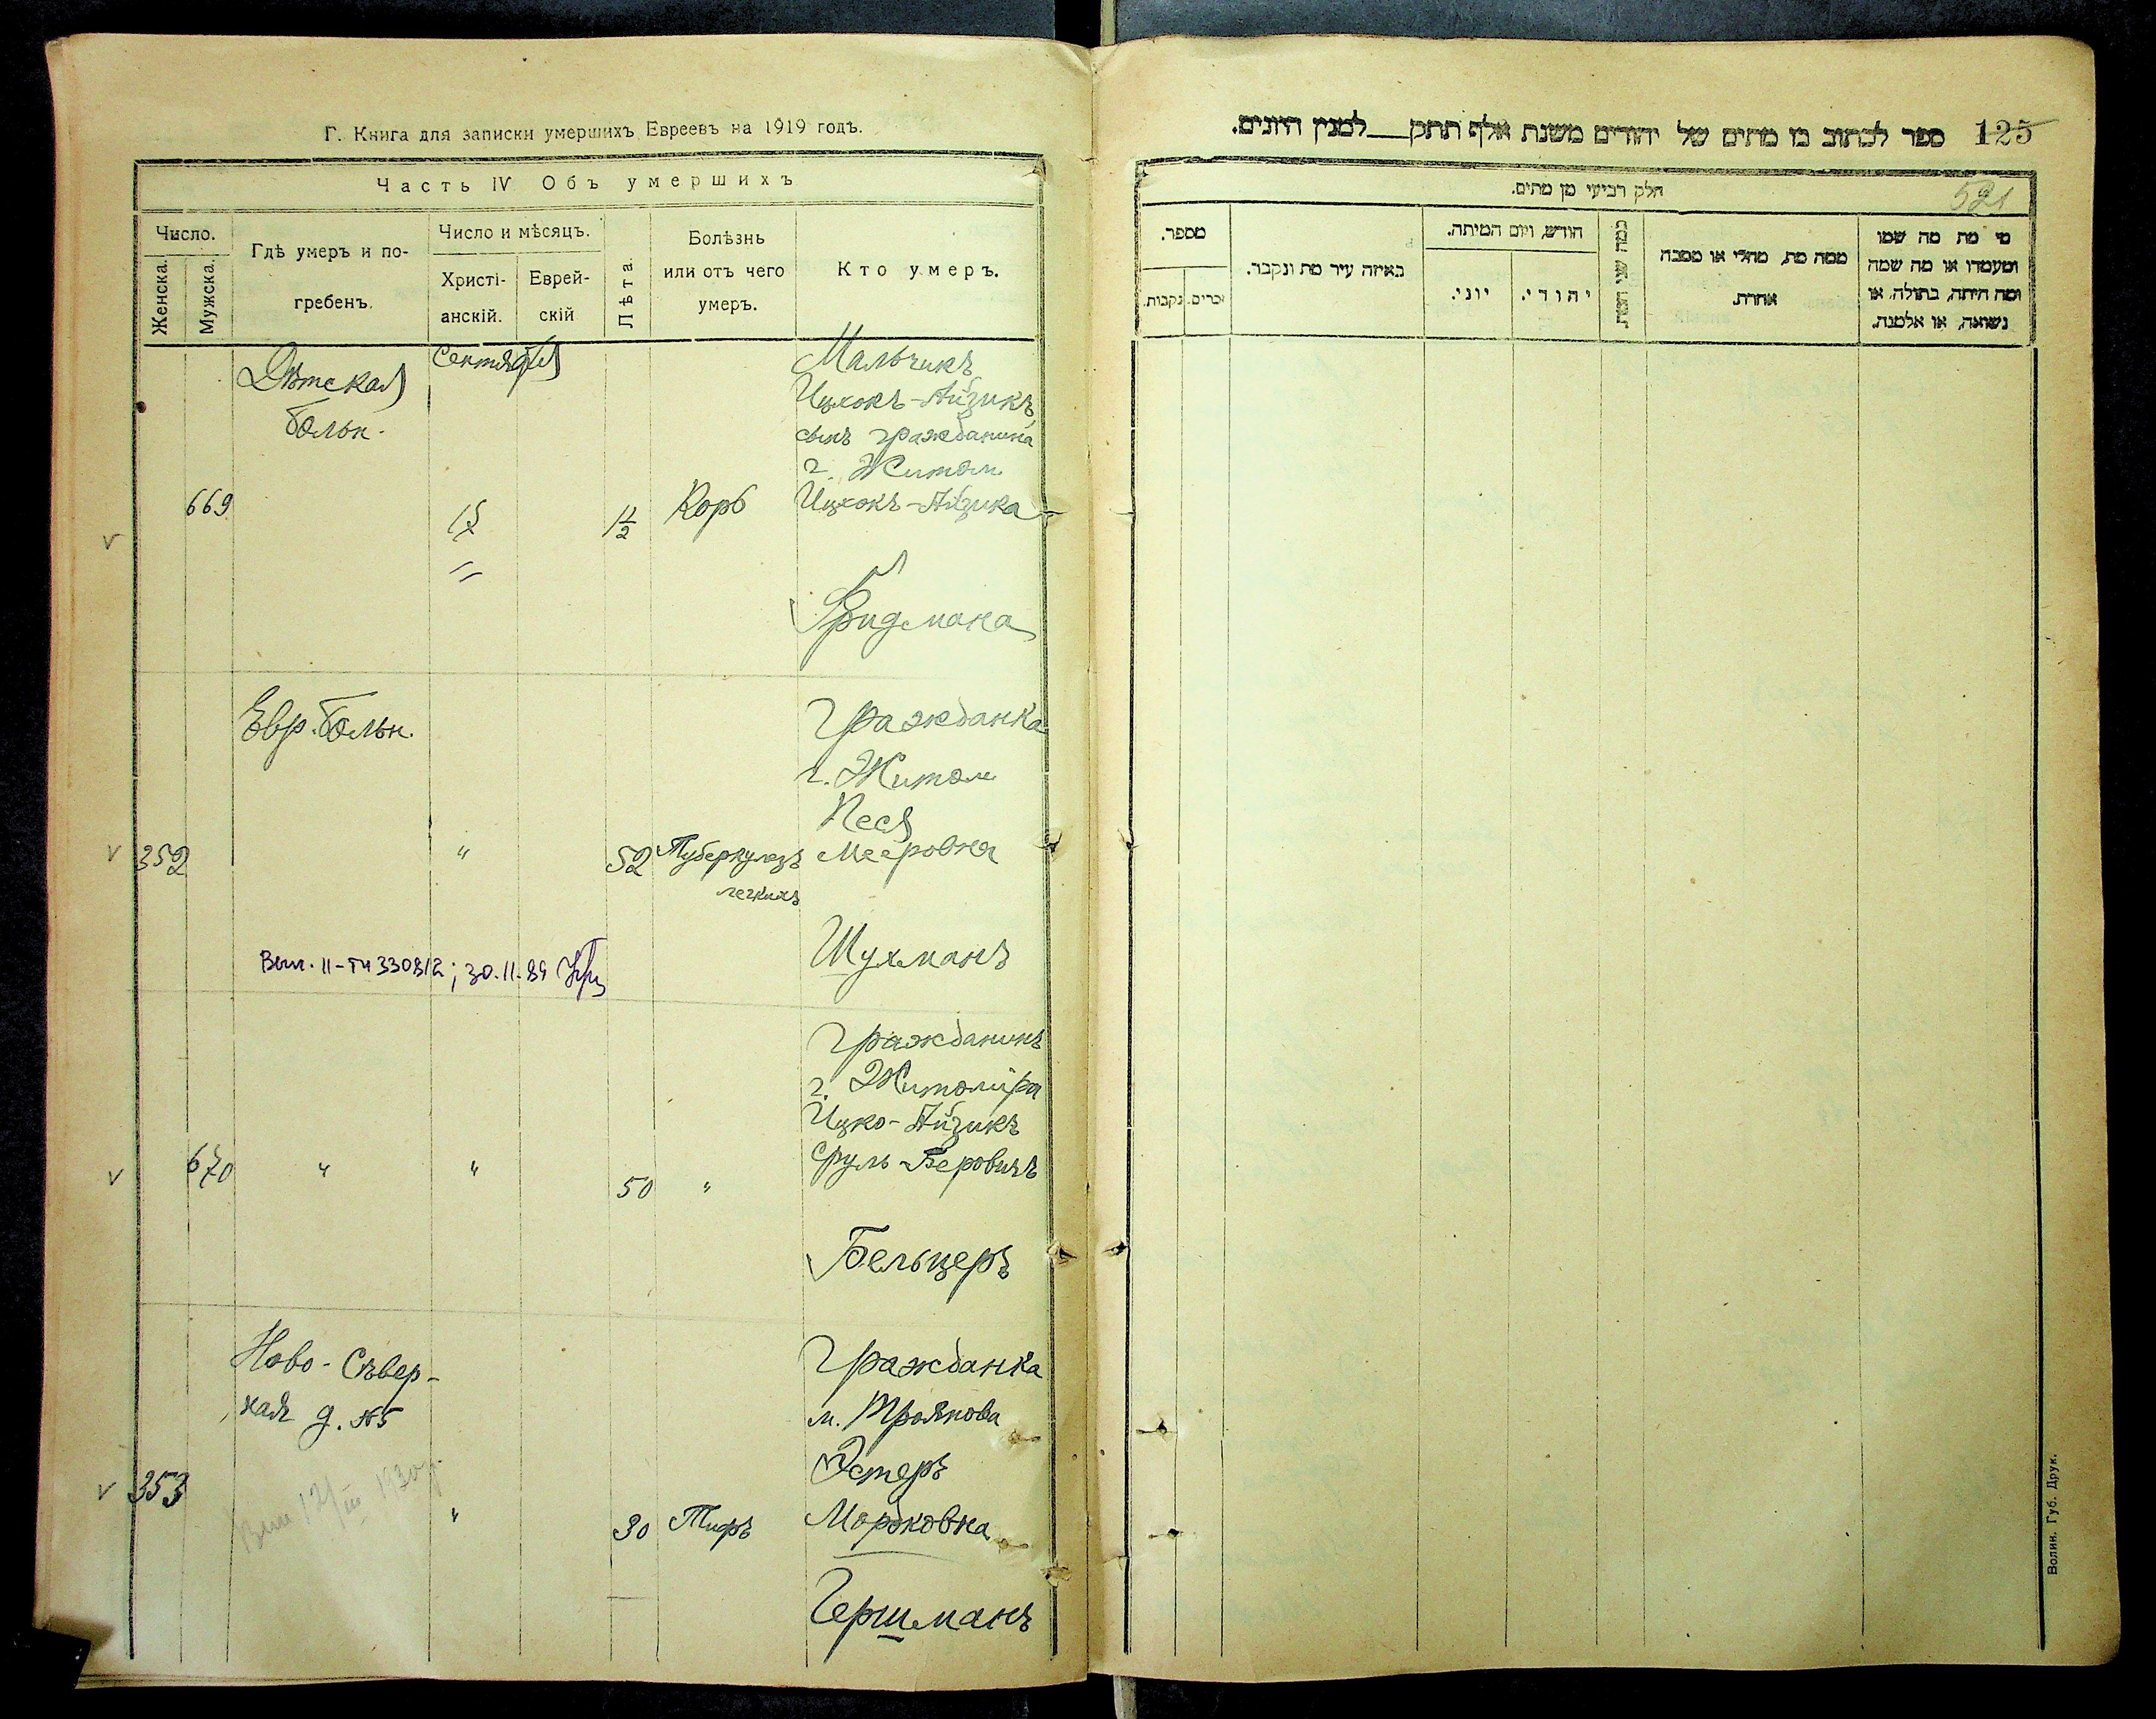 Г. Книга для записки умершихъ Евреевъ на 1919 годъ.
Часть IV Объ умершихъ
Число.
Женска.
Мужска.
Гдѣ умеръ и по-
гребенъ.
Число и мѣсяцъ.
Христі-
анскій.
Еврей-
скій
Лѣта.
Болѣзнь
или отъ чего
умеръ.
Кто умеръ.
Дѣтская
больн.
Сентября
669
17
1 1/2
Корь
Мальчикъ
Ицхокъ-Айзикъ
сынъ гражданина
г. Житом
Ицхокъ-Айзика
Фридмана
Евр. больн.
352
"
52
Туберкулезъ
легкихъ
Гражданка
г. Житом
Песя
Мееровна
Шухманъ
30.11.89
670
"
"
50
"
Гражданинъ
г. Житоміра
Ицко-Айзикъ
Сруль-Беровичъ
Бельцеръ
Ново-Сѣвер-
ная д. №5
353
"
30
Тифъ
Гражданка
м. Троянова
Эстеръ
Мордковна
Гершманъ
125
ספר לכתוב בו מתים של יהודים משנת אלף תתק למנין היונים.
521
חלק רביעי מן מתים.
מספר.
זכרים.
נקבות.
באיזה עיר מת ונקבר.
חודש, ויום המיתה.
יוני.
יהודי.
כמה שני חיות
ממה מת, מחלי או מסבה
אחרת.
מי מת מה שמו
ומעמדו או מה שמה
ומה היתה, בתולה, או
נשואה, או אלמנה.
Волин. Губ. Друк.